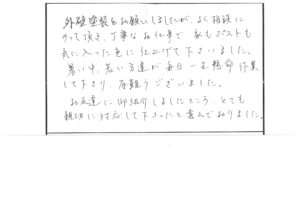 外壁塗装をお願いしましたが、よく相談に
のって頂き、丁寧なお仕事で 私もポストも
気に入った色に仕上げて下さいました。
暑い中、若い方達が毎日一生懸命作業
して下さり、有難うございました。
お友達に御紹介しましたところ、とても
親切に対応して下さったと喜んでおりました。